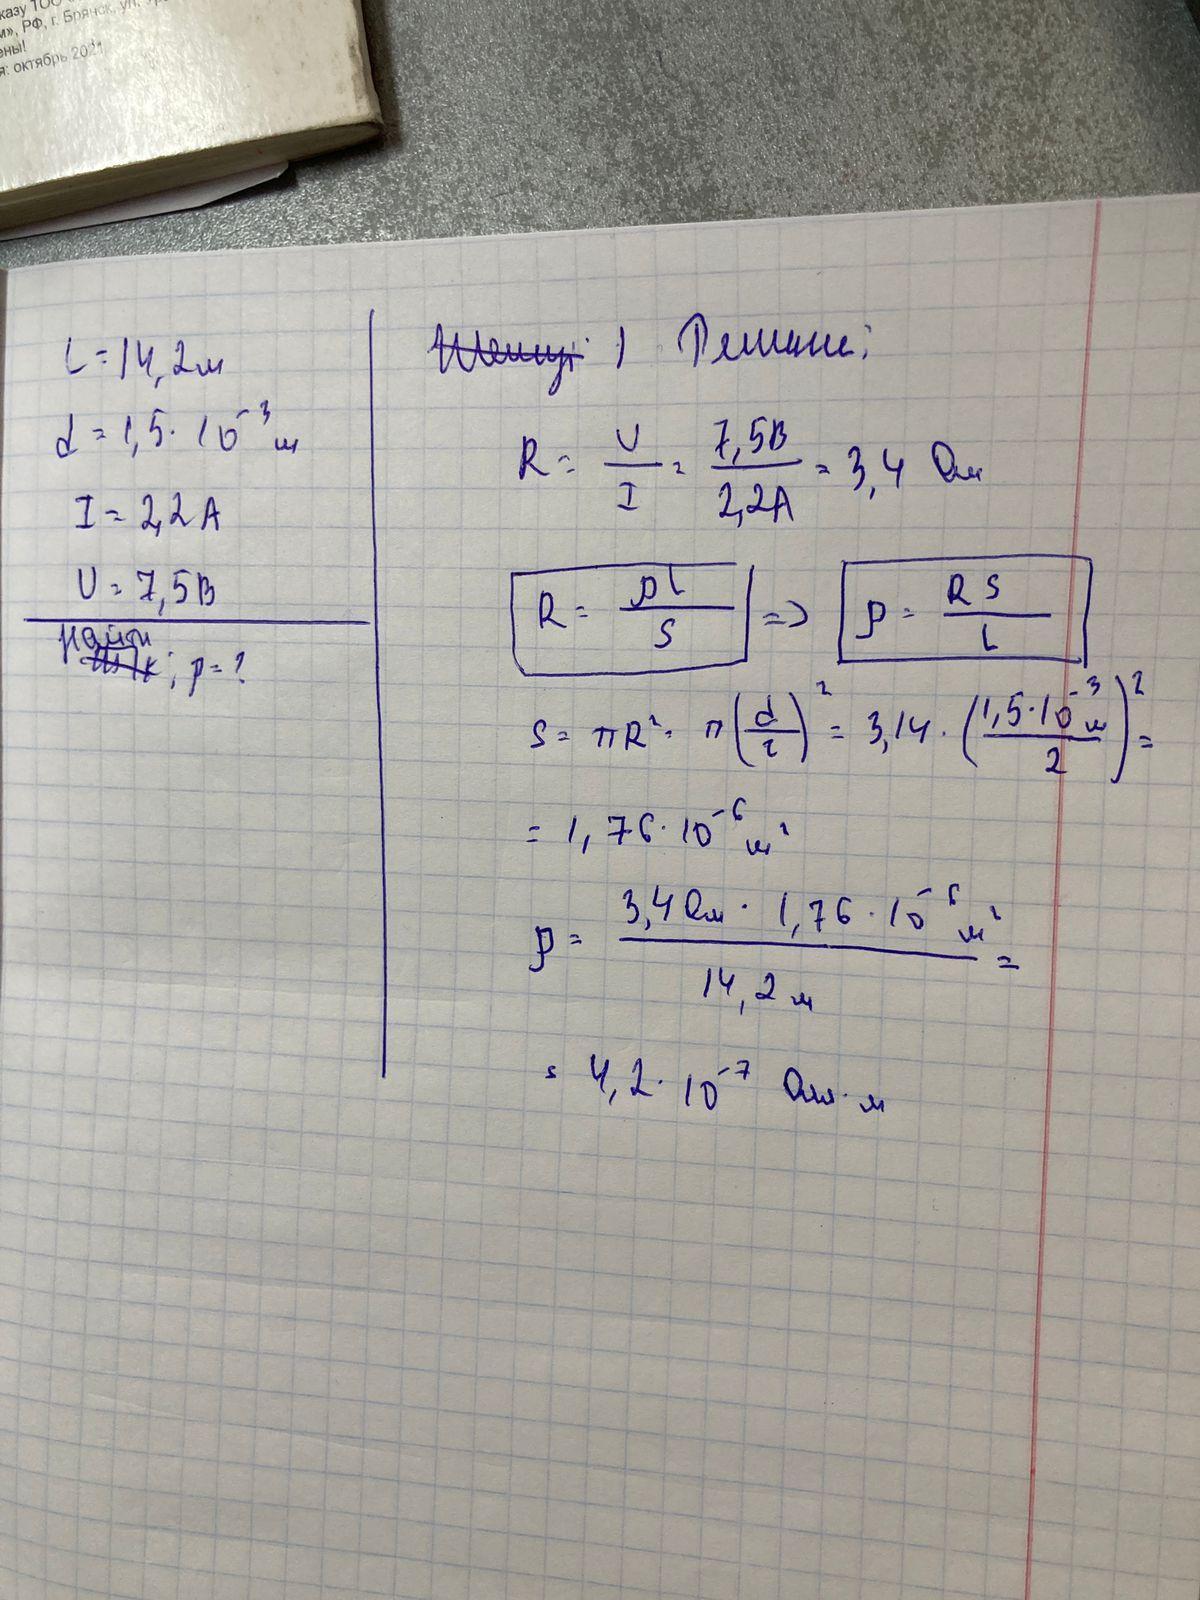 казу ТОО
м», РФ, г. Брянск, ул.
ены!
я: октябрь 2021
L = 14,2 м
d = 1,5 · 10⁻³ м
I = 2,2 A
U = 7,5 В
найти ; ρ = ?
1 Решение:
R = U/I = 7,5В/2,2А = 3,4 Ом
R = ρL/S => ρ = RS/L
S = πR² = π(d/2)² = 3,14 · (1,5·10⁻³ м/2)² =
= 1,76 · 10⁻⁶ м²
ρ = 3,4 Ом · 1,76 · 10⁻⁶ м²/14,2 м =
= 4,2 · 10⁻⁷ Ом · м